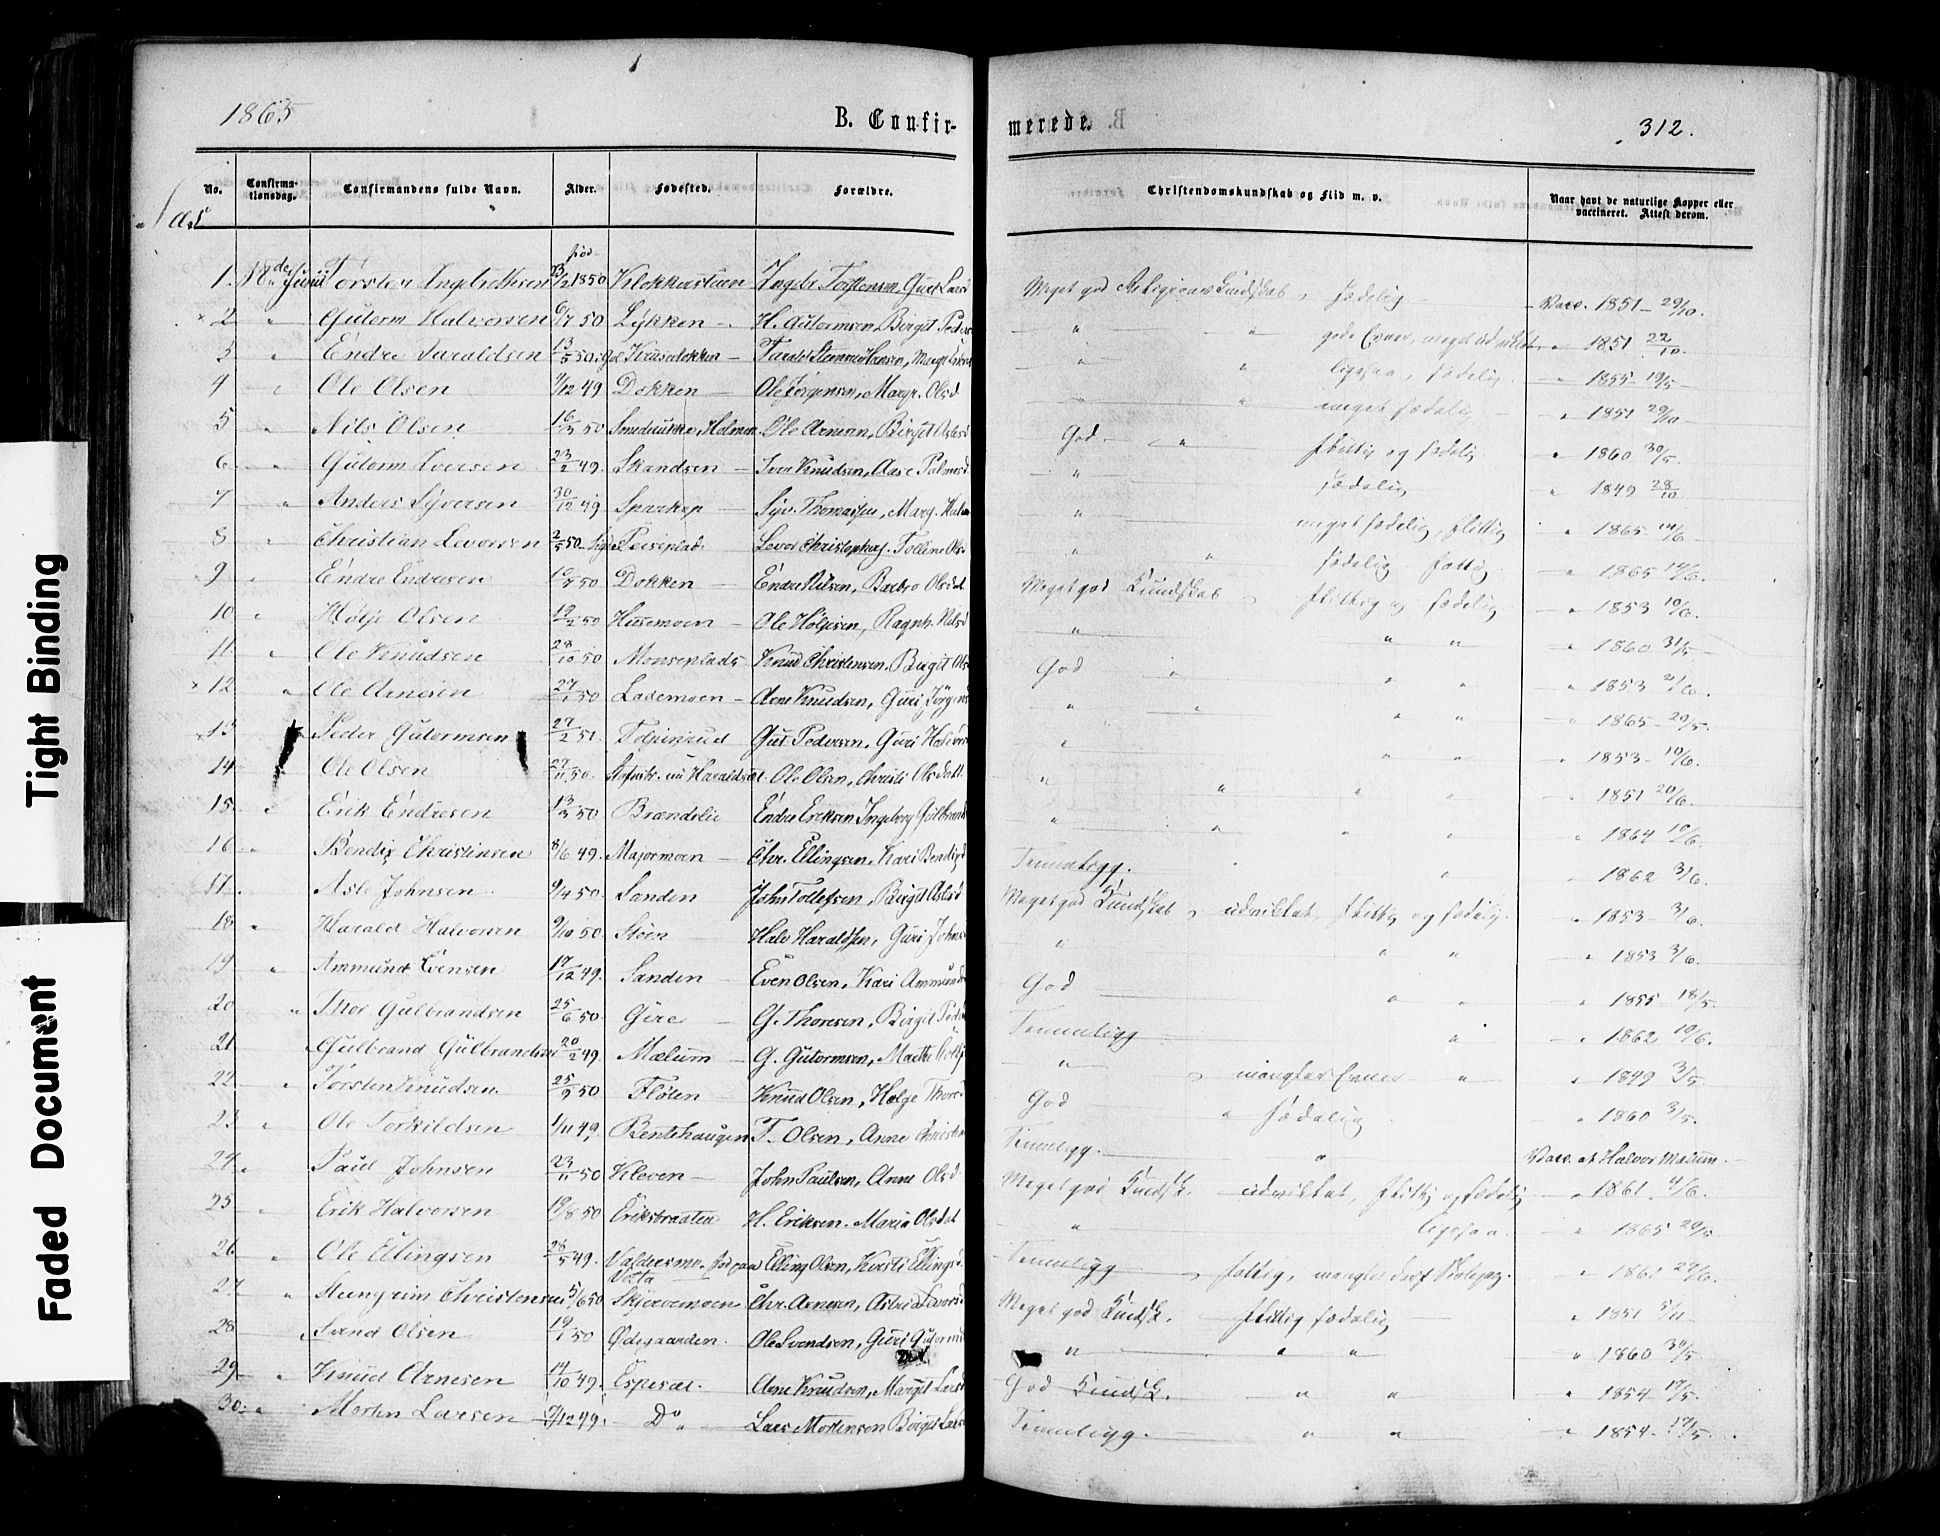 Tight Binding
Faded Document
1865
B. Confir-
merede.
312.
No. Confirma-tionsdag. Confirmandens fulde Navn. Alder. Fødested. Forældre. Christendomskundskab og Flid m. v. Naar havt de naturlige Kopper eller vaccineret. Attest derom.
Nas
fød
1. 18de Juni Torsten Ingebrethsen 23/2 1850 Klokkerstuen Ingebr. Torstensen, Guri Larsd Meget god Religions Kundskab, sædelig Vacc. 1851 - 29/10.
2 " Gutorm Halvorsen 6/7 50 Lykken - H. Gutormsen, Birgit Peders " " gode Evner, meget udviklet " 1851 22/10.
3 " Endre Taraldsen 13/5 50 Krusedokken - " " ligesaa, sædelig " 1855 - 19/5 -
4 " Ole Olsen 4/12 49 Dokken - Ole Jørgensen, Margr. Olsd. " " meget sædelig " 1851 29/10
5 " Nils Olsen 16/3 50 Holmen. Ole Arnesen, Birgit Aslesd God " flittig og sædelig " 1860 30/5.
6 " Gutorm Iversen 23/2 49. Skandsen - Iver Knudsen, Aase Palmesd " sædelig " 1849 28/10
7 " Anders Syversen 30/12 49 Sparkop Syv. Thomassen, Marg. Halv " meget sædelig, flittig " 1865 - 14/6 -
8 " Christian Levorsen 2/5 50 - Levor Christophers. Olsd " " sædelig flittig " 1865 14/6.
9 " Endre Endresen 10/8 50 Dokken - Endre Nilsen, Barbro Olsdat Meget god Kundskab, flittig og sædelig " 1853 10/6.
10 " Holje Olsen 19/2 50 Husemoen - Ole Holjesen, Ragnh. Nilsd " " " " 1860 31/5 -
11 " Ole Knudsen 28/10 50 Monseplads Knud Christensen. Birgit Ols God " " " " 1853 2/6.
12 " Ole Arnesen 27/1 50 Lademoen - Arne Knudsen, Guri Jørgens " " " " " 1865 - 29/5.
13 Peder Gutormsen 27/2 51 Gut. Pedersen, Guri Halvors " " " " 1853 - 10/6.
14 Ole Olsen 27/11 50. Ole Olsen, Christi Olsdatt. " " " " " 1851 20/6.
15 " Erik Endresen 13/3 50 Brændelie Endre Eriksen Ingeborg Gulbrands " " " " " 1864 10/6.
16 " Bendix Christensen 8/6 49. Majormoen - Chr. Ellingsen, Kari Bendixd Temmeligg. " " " 1862 3/6.
17. Asle Johnsen 9/4 50 Sanden John Tollefsen, Birgit Aslesd Meget god Kundskab, udviklet, flittig og sædelig. " 1853 - 3/6.
18 " Harald Halvorsen 9/10 50. Støen - Halv Haraldsen, Guri Johns " " " " 1853 3/6.
19 " Ammund Evensen 17/12 49. Sanden Even Olsen, Kari Ammunds God " " " 1855 18/5.
20 " Thor Gulbrandsen 25/6 50. Gire - G. Thoresen, Birgit Peders Temmeligg " " 1862 10/6.
21 Gulbrand Gulbrandsen 20/2 49. Mælum - G. Gutormsen, Marthe " , mangler Evner " " 1849 3/5.
22 " Torsten Knudsen. 25/9 50 Fløten - Knud Olsen, Helge Thores God " sædelig " 1860 3/5.
23 " Ole Torkildsen 1/11 49. Bentehaugen T. Olsen, Anne Christens Temmeligg. " Vacc. af Halvor Mælum. -
24 " Paul Johnsen 23/11 50 Kleven - John Paulsen, Anne Olsd Meget god Kundsk. udviklet, flittig og sædelig " 1861 4/6.
25 " Erik Halvorsen 19/8 50 Eriksbraaten H. Eriksen. Maria Olsdat " ligesaa. " 1865 29/5
26 " Ole Ellingsen 28/5 49. Valdersmo. fød paa Vesta Elling Olsen, Kersti Ellingsd. Temmeligg , flittig, mangler " 1861 27/6.
27. " Steingrim Christensen 5/6 50 Skjærvemoen Chr. Arnesen, Astrid Levorsd Meget god Kundsk. flittig sædelig - " 1851 5/11 -
28 " Svend Olsen 19/1 50 Ødegaarden. Ole Svendsen, Guri Gutorms " " " " 1860 30/5
29 " Knud Arnesen 14/10 49. Espeset. Arne Knudsen, Margit Larsd God Kundsk. " " " 1854 17/5.
30. " Morten Larsen 7/12 49. Do " Lars Mortensen Birgit Lars Temmeligg. " " " 1854 - 17/5.